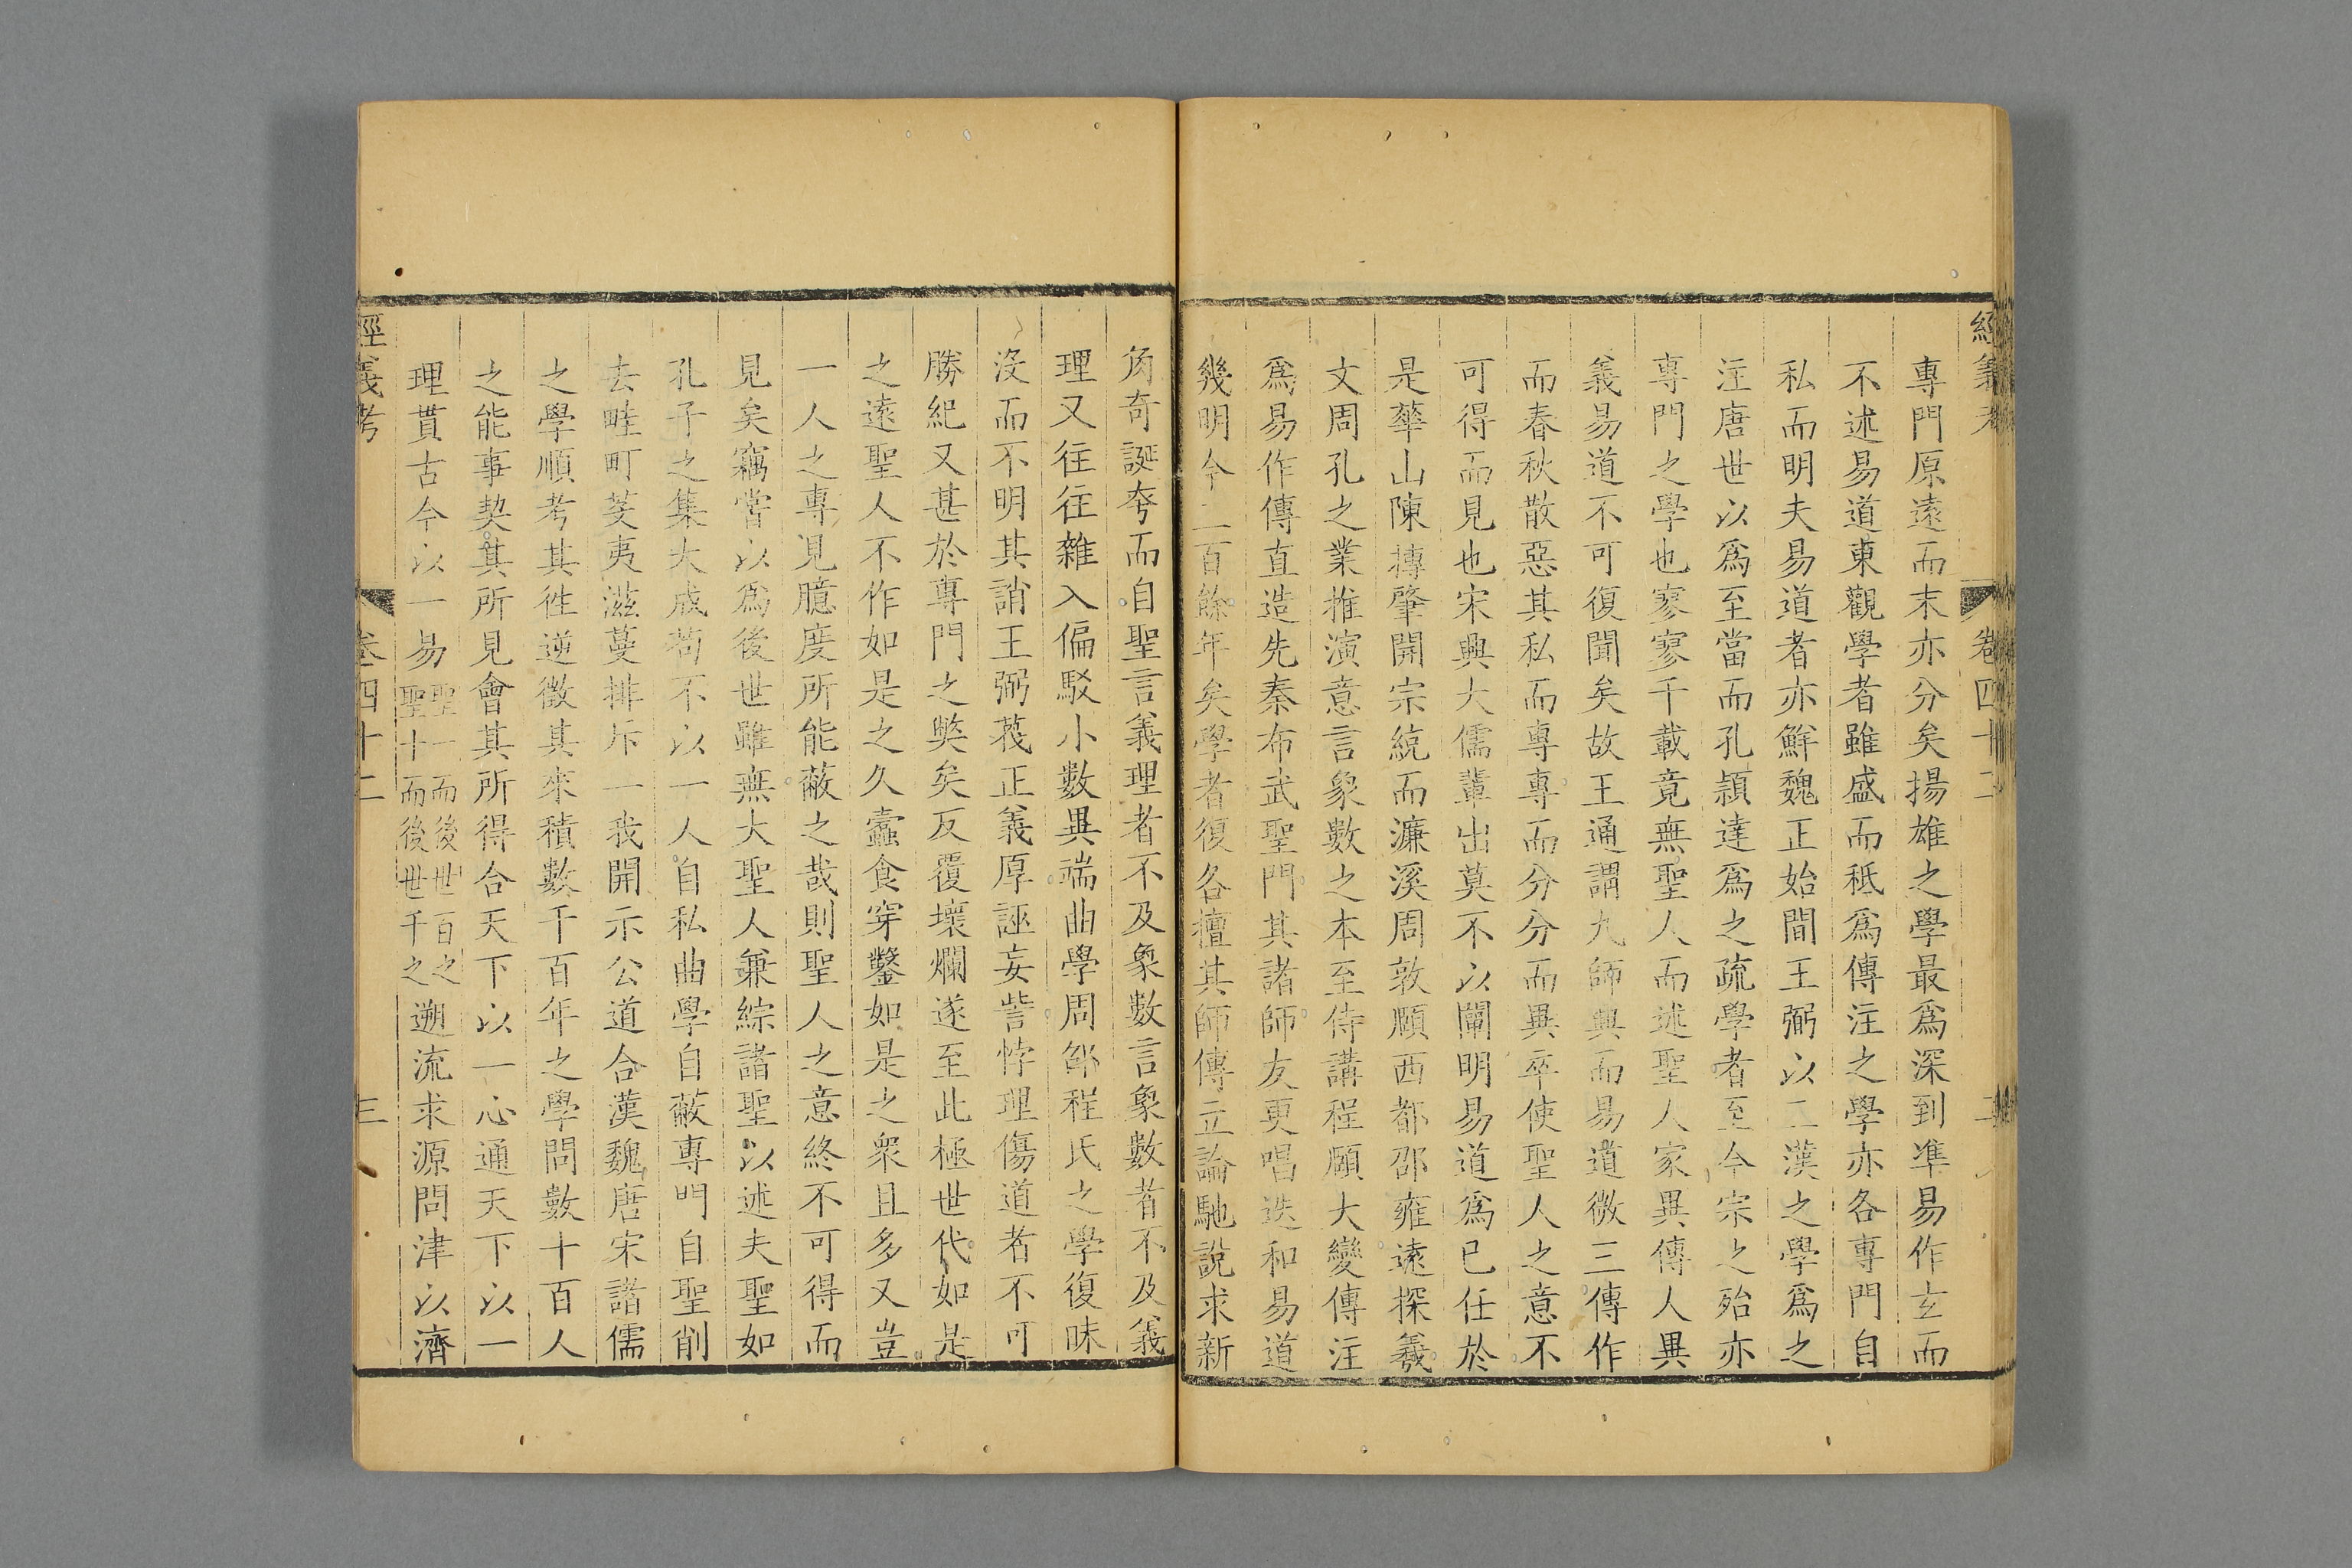 經義考 卷四十二 二
專門原遠而末亦分矣揚雄之學最爲深到準易作玄而
不述易道東觀學者雖盛而秪爲傳注之學亦各專門自
私而明夫易道者亦鮮魏正始間王弼以二漢之學爲之
注唐世以爲至當而孔穎達爲之疏學者至今宗之殆亦
專門之學也寥寥千載竟無聖人而述聖人家異傳人異
義易道不可復聞矣故王通謂九師興而易道微三傳作
而春秋散惡其私而專專而分分而異卒使聖人之意不
可得而見也宋興大儒輩出莫不以闡明易道爲已任於
是華山陳摶肇開宗統而濂溪周敦頤西都邵雍遠探羲
文周孔之業推演意言象數之本至侍講程頤大變傳注
爲易作傳直造先秦布武聖門其諸師友更唱迭和易道
幾明今二百餘年矣學者復各擅其師傳立論馳說求新
角奇誕夸而自聖言義理者不及象數言象數者不及義
理又往往雜入偏駁小數異端曲學周邵程氏之學復昧
沒而不明其誚王弼蔑正義厚誣妄訾悖理傷道者不可
勝紀又甚於專門之獘矣反覆壞爛遂至此極世代如是
之遠聖人不作如是之久蠹食穿鑿如是之衆且多又豈
一人之專見臆度所能蔽之哉則聖人之意終不可得而
見矣竊嘗以爲後世雖無大聖人兼綜諸聖以述夫聖如
孔子之集大成茍不以一人自私曲學自蔽專門自聖削
去畦町芟夷滋蔓排斥一我開示公道合漢魏唐宋諸儒
之學順考其徃逆徵其來積數千百年之學問數十百人
之能事契其所見會其所得合天下以一心通天下以一
理貫古今以一易聖一而後世百之聖十而後世千之遡流求源問津以濟
經義考 卷四十二 三